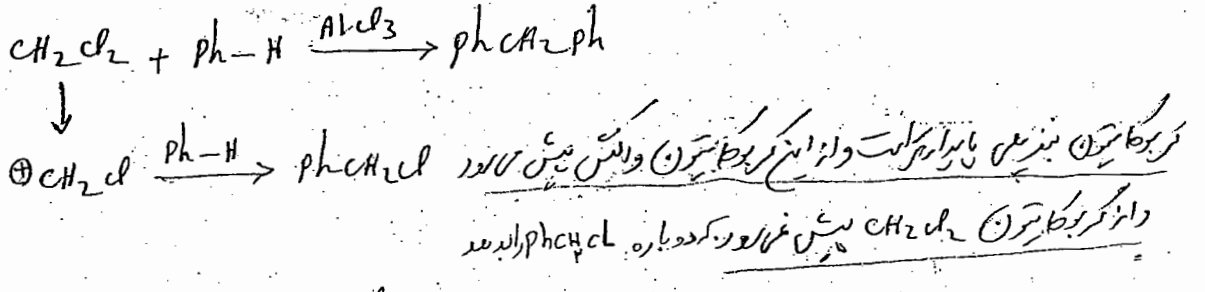 CH2Cl2 + Ph-H AlCl3 → PhCH2Ph
↓
⊕CH2Cl Ph-H → PhCH2Cl کربوکاتیون بنزیلی پایدارتر است و از این کربوکاتیون واکنش پیش می‌رود
و از کربوکاتیون CH2Cl2 پیش نمی‌رود که دوباره PhCH2Cl را بدهد